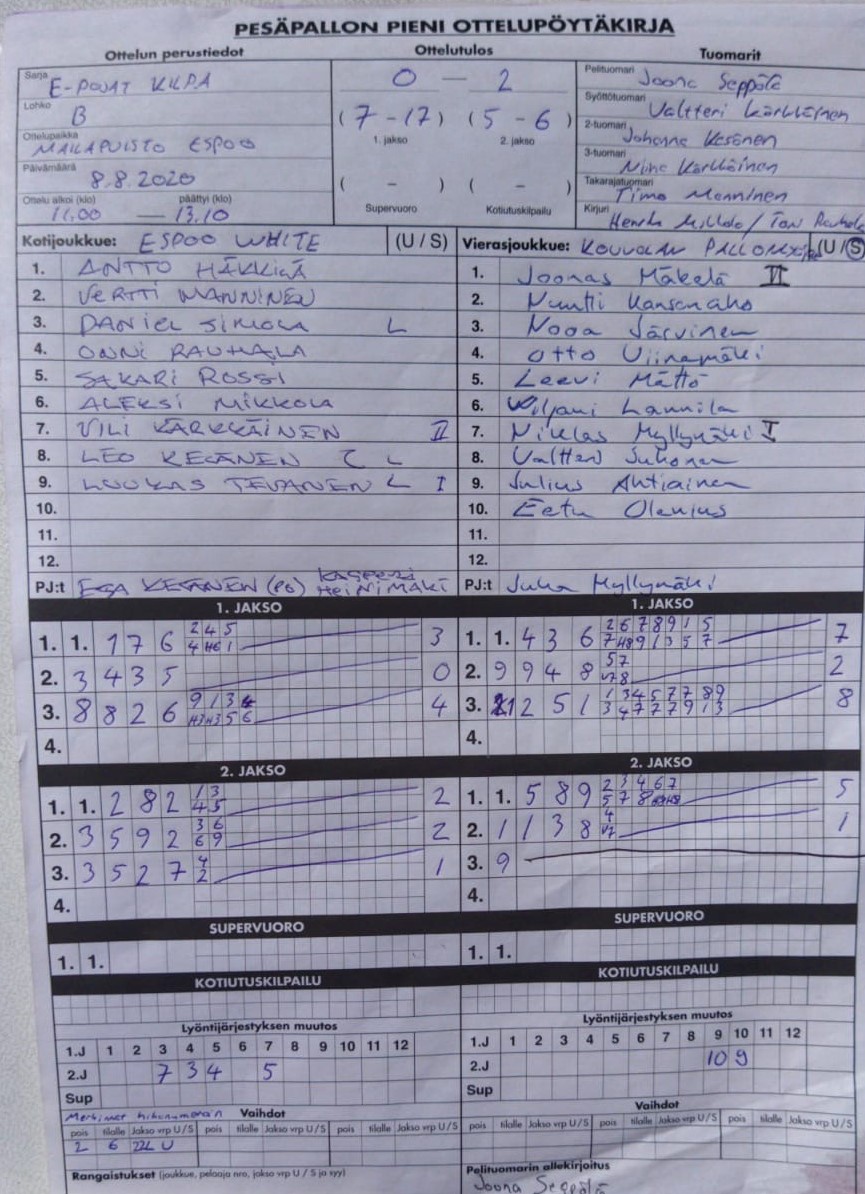 PESÄPALLON PIENI OTTELUPÖYTÄKIRJA
Ottelun perustiedot
Sarja E-POJAT KILPA
Lohko B
Ottelupaikka MAILAPUISTO ESPOO
Päivämäärä 8.8.2020
Ottelu alkoi (klo) päättyi (klo)
11.00 — 13.10
Ottelutulos
0 — 2
(7 - 17) (5 - 6)
1. jakso 2. jakso
( - ) ( - )
Supervuoro Kotiutuskilpailu
Tuomarit
Pelituomari Joona Seppälä
Syöttötuomari Valtteri Kärkkäinen
2-tuomari Johanna Kesänen
3-tuomari Niina Kärkkäinen
Takarajatuomari Timo Manninen
Kirjuri Henrik
Kotijoukkue: ESPOO WHITE (U / S)
1. ANTTO HÄKKILÄ
2. VERTTI MANNINEN
3. DANIEL SIMOLA L
4. ONNI RAUHALA
5. SAKARI ROSSI
6. ALEKSI MIKKOLA
7. VILI KÄRKKÄINEN II
8. LEO KESÄNEN C L
9. LUUKAS TEVANEN L I
10.
11.
12.
PJ:t ESA KESÄNEN (PO) KASPERI HEINIMÄKI
Vierasjoukkue: KOUVOLAN (U / S)
1. Joonas Mäkelä II
2. Nuutti Kansanaho
3. Nooa Järvinen
4. Otto Viinamäki
5. Leevi Mättö
6. Lannila
7. Niklas Myllymäki I
8. Valtteri Juhonen
9. Julius Ahtiainen
10. Eetu Olenius
11.
12.
PJ:t Juha Myllymäki
1. JAKSO
1. 1. 1 7 6 2 4 5 3
4 H6 1
2. 3 4 3 5 0
3. 8 8 2 6 9 1 3 4 4
H3 H3 5 6
4.
2. JAKSO
1. 1. 2 8 2 1 3 2
4 5
2. 3 5 9 2 3 6 2
6 9
3. 3 5 2 7 4 1
2
4.
SUPERVUORO
1. 1.
KOTIUTUSKILPAILU
Lyöntijärjestyksen muutos
1.J 1 2 3 4 5 6 7 8 9 10 11 12
2.J 7 3 4 5
Sup
Vaihdot
pois tilalle Jakso vrp U / S pois tilalle Jakso vrp U / S pois tilalle Jakso vrp U / S
2 6 U
Rangaistukset (joukkue, pelaaja nro, jakso vrp U / S ja syy)
1. JAKSO
1. 1. 4 3 6 2 6 7 8 9 1 5 7
7 H8 9 1 3 5 7
2. 9 9 4 8 5 7 2
V7 8
3. 1 2 5 1 1 3 4 5 7 7 8 9 8
3 4 7 7 7 9 1 3
4.
2. JAKSO
1. 1. 5 8 9 2 3 4 6 7 5
5 7 8
2. 1 1 3 8 4 1
V7
3. 9
4.
SUPERVUORO
1. 1.
KOTIUTUSKILPAILU
Lyöntijärjestyksen muutos
1.J 1 2 3 4 5 6 7 8 9 10 11 12
2.J 10 9
Sup
Vaihdot
pois tilalle Jakso vrp U / S pois tilalle Jakso vrp U / S pois tilalle Jakso vrp U / S
Pelituomarin allekirjoitus
Joona Seppälä